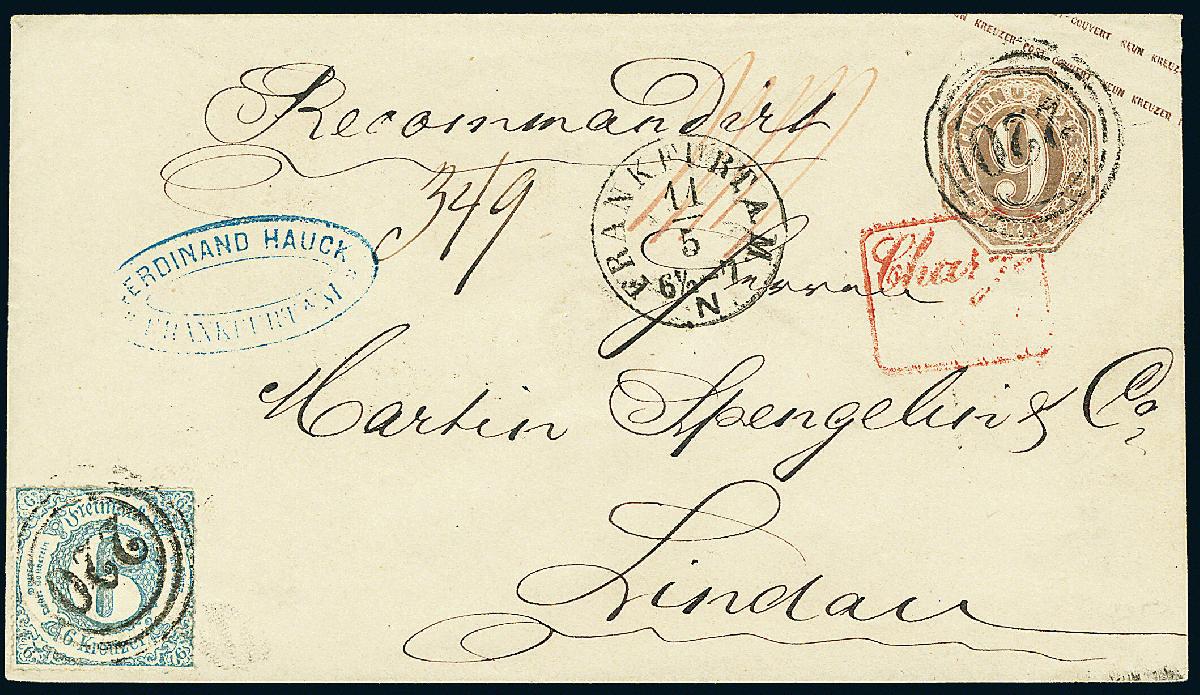 KREUZER POST-COUVERT NEUN KREUZER
COUVERT NEUN KREUZER
Recommandirt
349
9
220
FERDINAND HAUCK
FRANKFURT A/M
FRANKFURT A.M.
11
5
6½-7
N
Charg
Herren
Martin Spengelin & Co
Lindau
220
Freimarke
6 Kreuzer